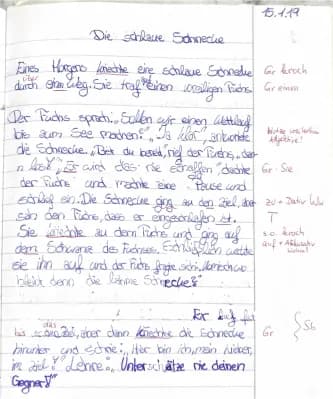 15.1.19
Die schlaue Schnecke
Eines Morgens kriechte eine schlaue Schnecke Gr kroch
über
durch ihren Weg. Sie traf einen Fuchs. Gr einen
Der Fuchs sprach: „Sollen wir einen Wettlauf
bis zum See machen?" „Ja klar", antwortete
die Schnecke. „Bist du bereit," rief der Fuchs, „dann
los!" „Es wird das nie schaffen", dachte Gr: Sie
der Fuchs und machte eine Pause und
schlief ein. Die Schnecke ging zu den Ziel, aber zu + Dativ
sah den Fuchs, dass er eingeschlafen ist.
Sie kriechte zu dem Fuchs und ging auf s.o. kroch
dem Schwanz des Fuchses. weckte auf + Akkusativ
sie ihn auf und der Fuchs fragte sich:
bleibt denn die lahme Schnecke?"
Der
das
Ziel, aber dann kriechte die Schnecke Gr Sb
hinunter und schrie: „Hier bin ich, mein Lieber,
im Ziel!" Lehre: „Unterschätze nie deinen
Gegner!"